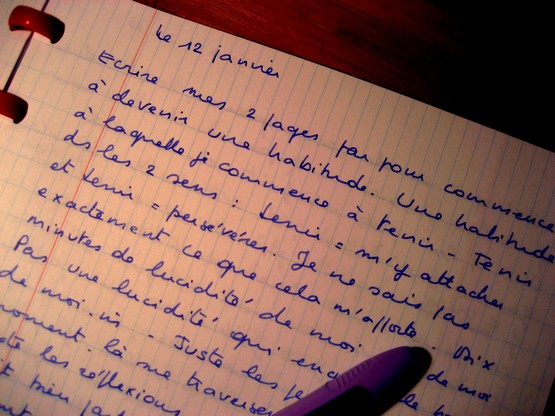 Le 12 janvier
Ecrire mes 2 pages par jour commence
à devenir une habitude. Une habitude
à laquelle je commence à tenir - Tenir
ds les 2 sens : tenir = m'y attacher
et tenir = persévérer. Je ne sais pas
exactement ce que cela m'apporte. Dix
minutes de lucidité de moi de moi
Pas une lucidité qui
de moi.
moment-là me traverser
les réflexions